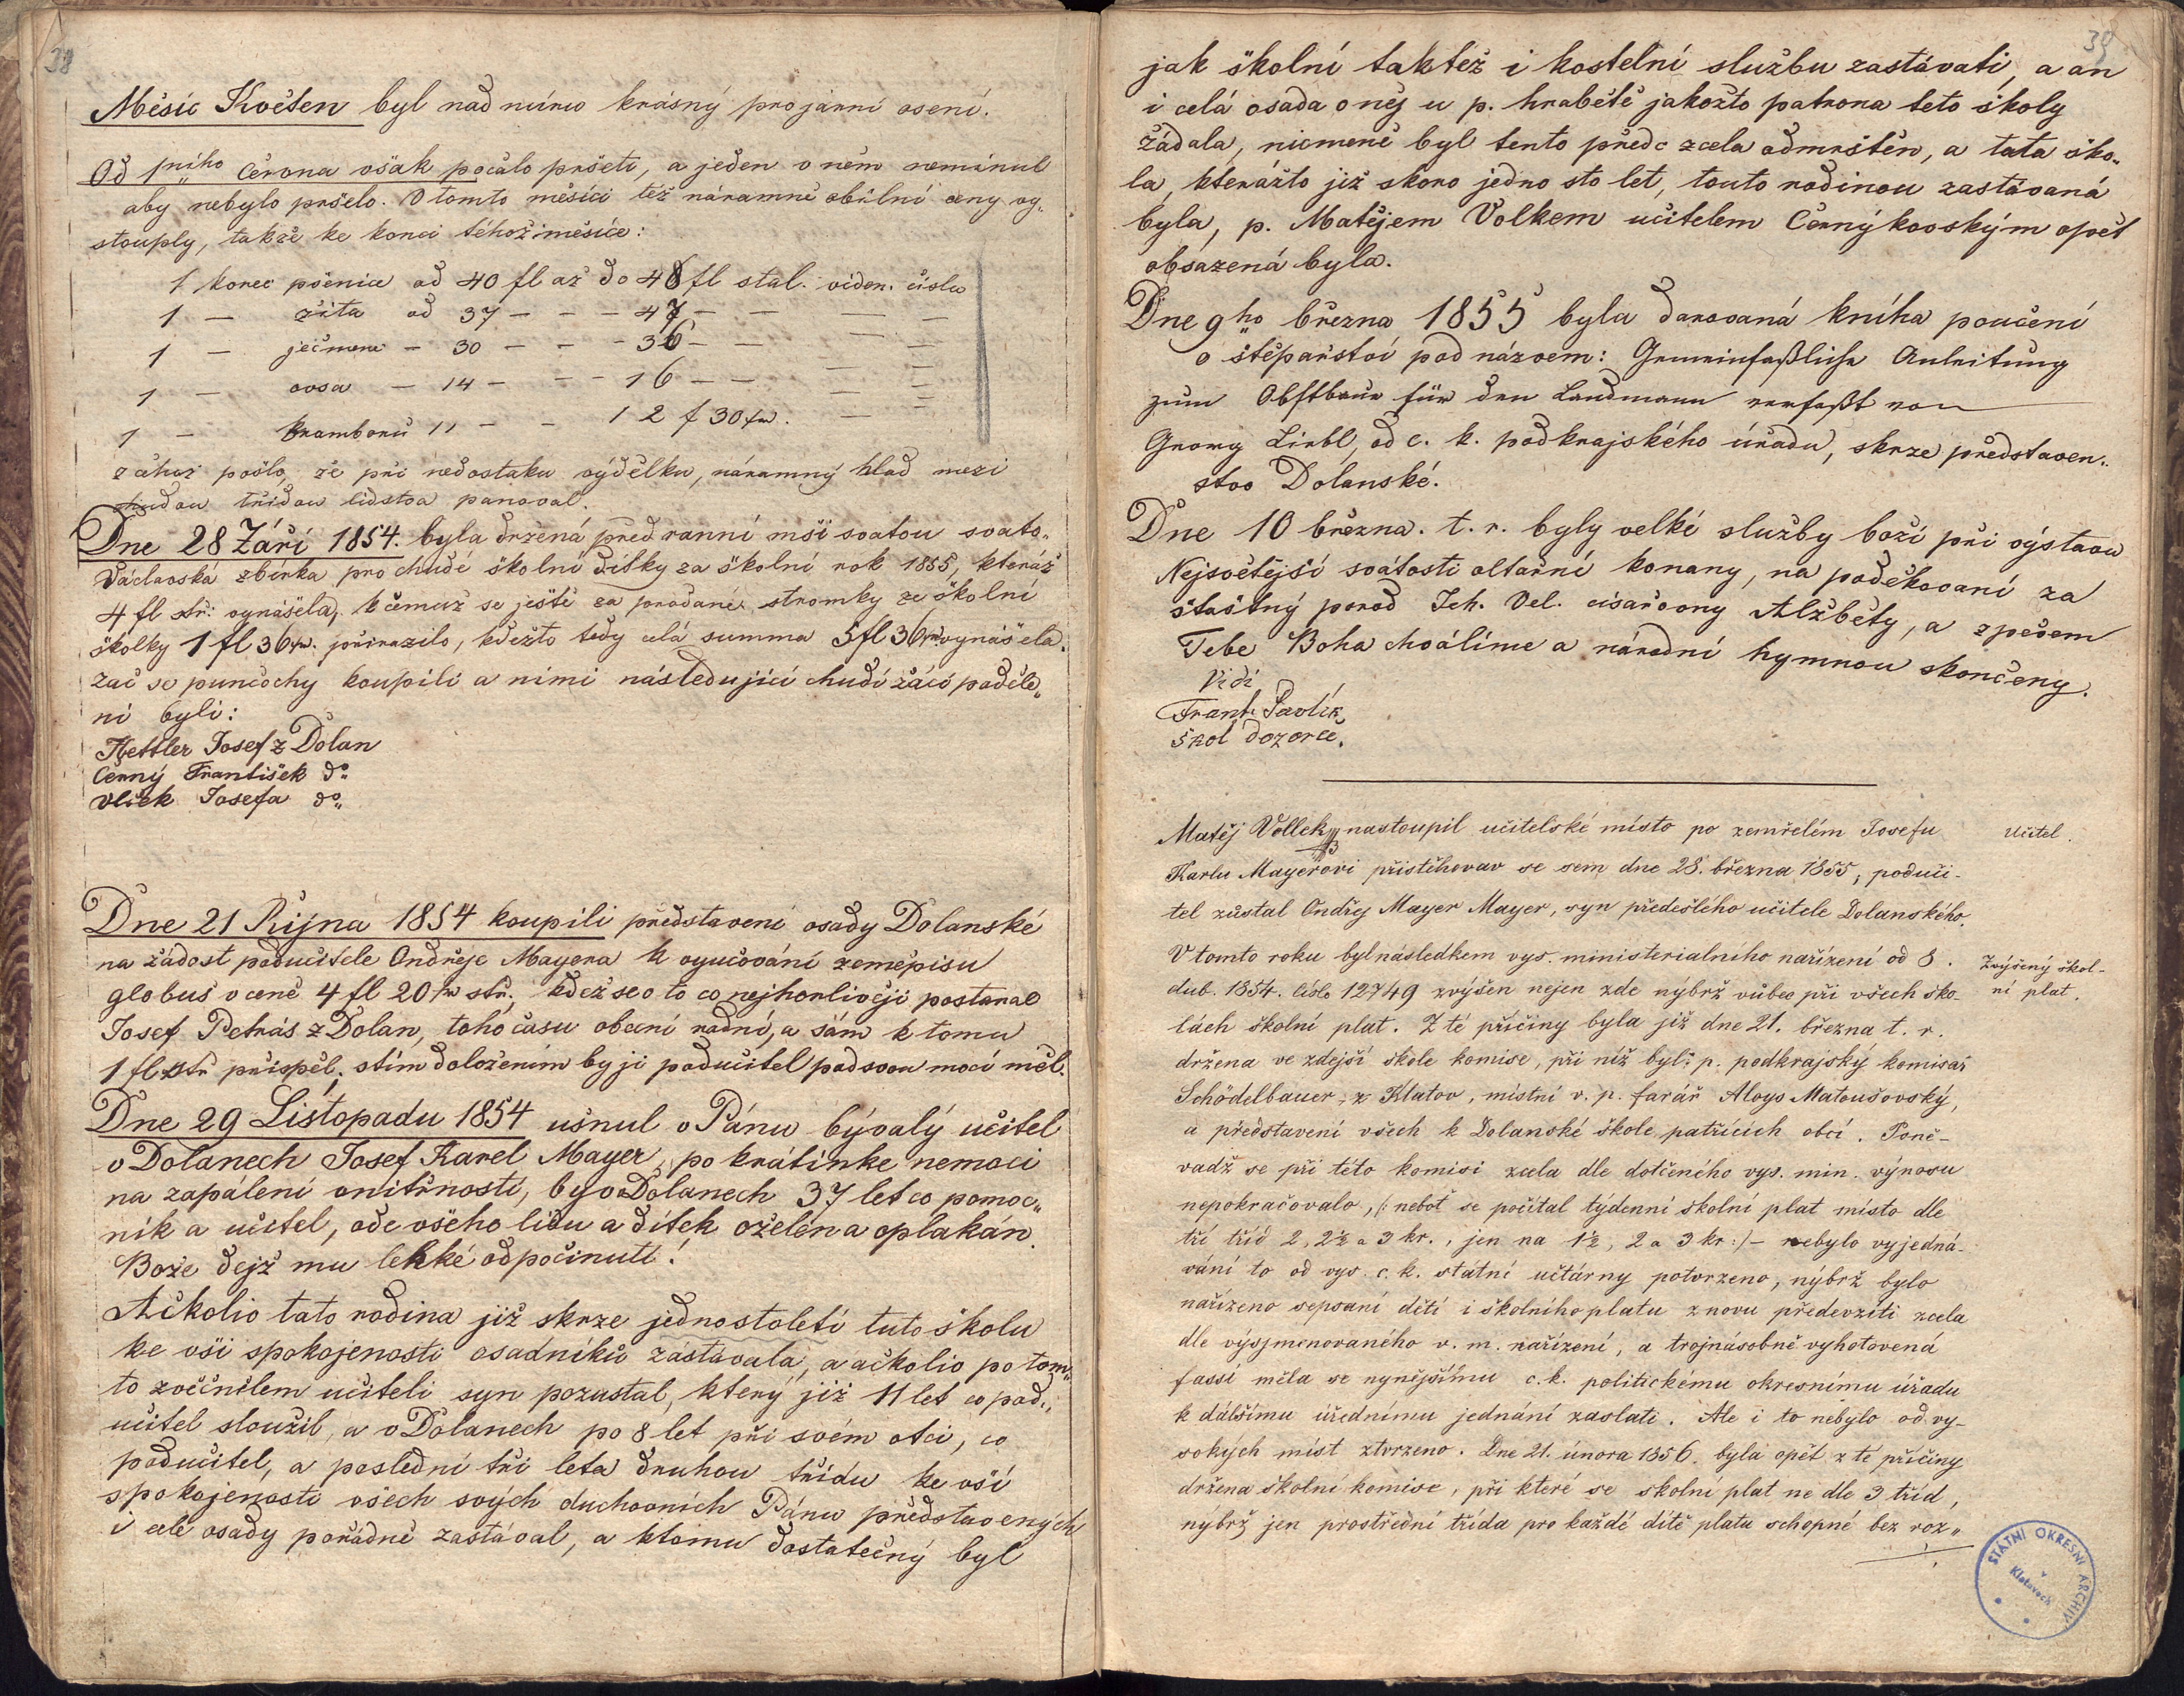 38
Měsíc Květen byl nad míru krásný pro jarní osení.
Od 1ního Června však počalo pršeti, a jeden v něm neminul
aby nebylo pršelo. V tomto měsíci též náramně obilní ceny vy„
stouply, takže ke konci téhož měsíce:
1 korec pšenice od 40 fl až do 48 fl stál. vídeň. čísla
1 — žita od 37 — — — 47 — — — —
1 — ječmene — 30 — — — 36 — — — —
1 — ovsa — 14 — — — 16 — — — —
1 — Bramborů 11 — — 12 f 30 kr. — —
z čehož pošlo, že při nedostatku výdělku, náramný hlad mezi
chudou třídou lidstva panoval.
Dne 28 Září 1854. byla držená před ranní mší svatou svato„
Václavská zbírka pro chudé školní dítky za školní rok 1855, kteráž
4 fl stř: vynášela, k čemuž se ještě za prodané stromky ze školní
školky 1 fl 36 kr. přirazilo, kdežto tedy celá summa 5 fl 36 kr vynášela.
zač se punčochy koupili a nimi následující chudí žáci poděle„
ni byli:
Kettler Josef z Dolan
Černý František do
Vlček Josefa do
Dne 21 Října 1854 koupili představení osady Dolanské
na žádost podučitele Ondřeje Mayera k vyučování zeměpisu
globus v ceně 4 fl 20 kr stř. kdež se o to co nejhorlivěji postaral
Josef Petrás z Dolan, toho času obecní radní, a sám k tomu
1 fl stř přispěl, s tím doložením by jí podučitel pod svou mocí měl.
Dne 29 Listopadu 1854 usnul v Pánu bývalý učitel
v Dolanech Josef Karel Mayer, po krátinke nemoci
na zapálení vnitřností, byv v Dolanech 37 let co pomoc„
ník a učitel, ode všeho lidu a dítek oželen a oplakán.
Bože dejž mu lehké odpočinutí!
Ačkoliv tato rodina již skrze jednostoletí tuto školu
ke vší spokojenosti osadníků zastávala, a ačkoliv po tom„
to zvěčnělem učiteli syn pozustal, který již 11 let co pod„
učitel sloužil, a v Dolanech po 8 let při svém otci, co
podučitel, a poslední tři leta druhou třídu ke vší
spokojenosti všech svých duchovních Pánu představených
i celé osady pořádně zastával, a k tomu dostatečný byl
39
jak školní taktéž i kostelní službu zastávati, a an
i celá osada o něj u p. hraběte jakožto patrona této školy
žádala, nicméně byl tento předc zcela odmrštěn, a tata ško„
la, kterážto již skoro jedno sto let, touto rodinou zastávaná
byla, p. Matějem Volkem učitelem Černýkovským opět
obsazená byla.
Dne 9ho března 1855 byla darovaná kníha poučení
o štěpařství pod názvem: Gemeinfaßliche Anleitung
zum Obstbaue für den Landmann verfaßt von
Georg Liebl, od c. k. podkrajského úřadu, skrze představen„
stvo Dolanské.
Dne 10 března. t. r. byly velké služby boží při výstavu
Nejsvětější svátosti oltařní konany, na poděkovaní za
šťastný porod Jeh. Vel. císařovny Alžběty, a zpěvem
Tebe Boha chválíme a národní hymnou skončeny.
Vidi
Frant. Pavlík
škol dozorce.
Matěj Vollek nastoupil učitelské místo po zemřelém Josefu
Učitel.
Karlu Mayerovi přistěhovav se sem dne 28. března 1855, poduči-
tel zůstal Ondřej Mayer Mayer, syn předešlého učitele Dolanského.
V tomto roku byl následkem vys. ministerialního nařízení od 8.
Zvýšený škol-
dub. 1854. číslo 12749 zvýšen nejen zde nýbrž vůbec při všech ško-
ní plat.
lách školní plat. Z té příčiny byla již dne 21. března t. r.
držena ve zdejší škole komise, při níž byl: p. podkrajský komisař
Schödelbauer z Klatov, místní v. p. farář Aloys Matoušovský,
a představení všech k Dolanské škole patřících obcí. Poně-
vadž se při této komisi zcela dle dotčeného vys. min. výnosu
nepokračovalo, /: neboť se počítal týdenní školní plat místo dle
tří tříd 2, 2½ a 3 kr., jen na 1½, 2 a 3 kr :/ – nebylo vyjedná-
vání to od vys. c. k. státní učtárny potvrzeno, nýbrž bylo
nařízeno sepsaní dětí i školního platu znovu předevzíti zcela
dle výsjmenovaného v. m. nařízení, a trojnásobně vyhotovená
fassí měla se nynějšímu c. k. politickému okresnímu úřadu
k dálšímu úřednímu jednání zaslati. Ale i to nebylo od vy-
sokých míst ztvrzeno. Dne 21. února 1856. byla opět z té příčiny
držena školní komise, při které se školní plat ne dle 3 tříd,
nýbrž jen prostřední třída pro každé dítě platu schopné bez roz„
STÁTNÍ OKRESNÍ ARCHIV
v
Klatovech